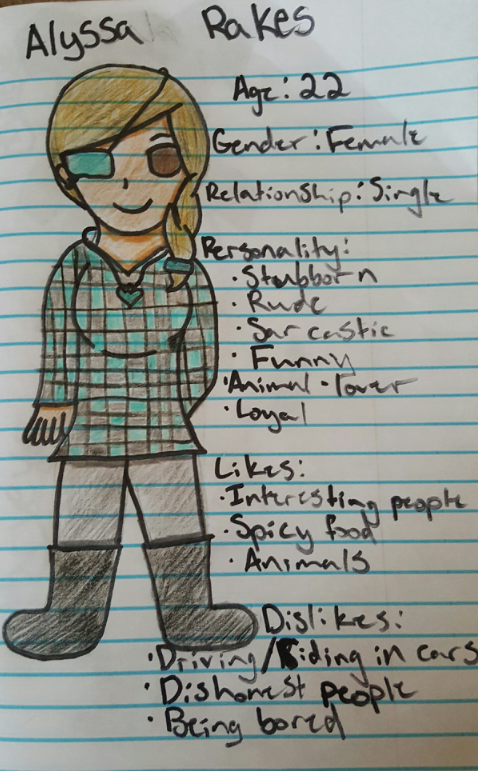 Alyssa Rakes
Age: 22
Gender: Female
Relationship: Single
Personality:
· Stubborn
· Rude
· Sarcastic
· Funny
· Animal-lover
· Loyal
Likes:
· Interesting people
· Spicy food
· Animals
Dislikes:
· Driving/Riding in cars
· Dishonest people
· Being bored